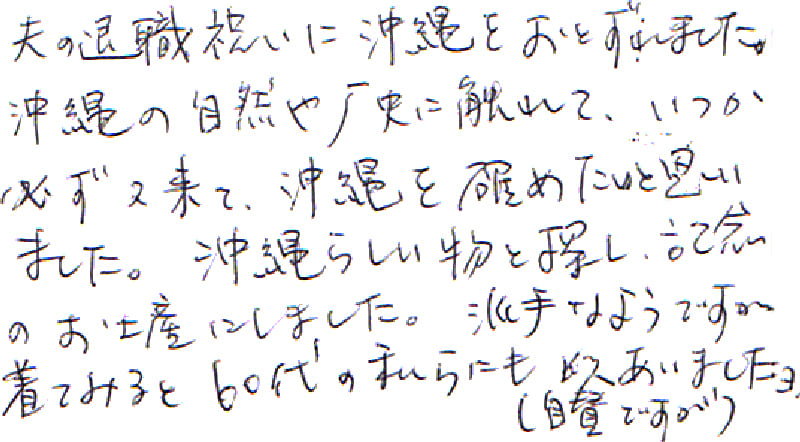 夫の退職祝いに沖縄をおとずれました。
沖縄の自然や厂史に触れて、いつか
必ず又来て、沖縄を確めたいと思い
ました。沖縄らしい物を探し、記念
のお土産にしました。派手なようですが
着てみると60代の私らにも似あいましたヨ。
(自賛ですが)